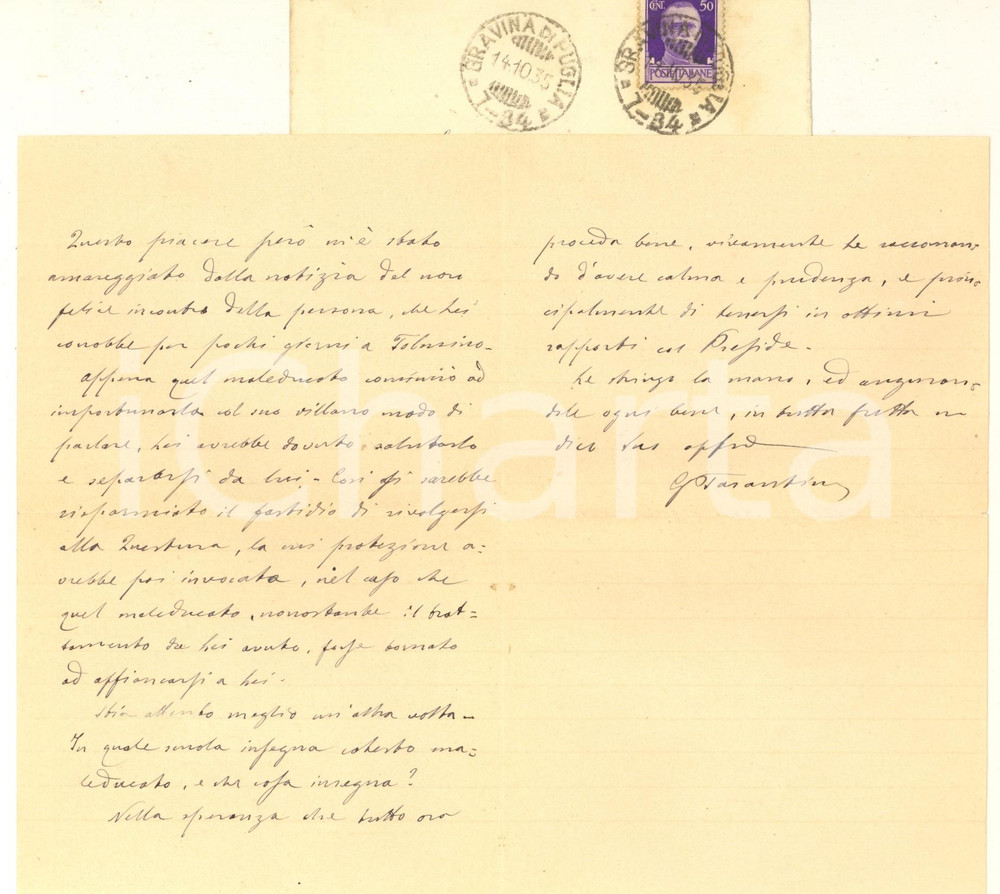 GRAVINA DI PUGLIA
14.10.35
7-34
CENT. 50
POSTE ITALIANE
GRAVINA DI PUGLIA
7-34
Questo piacere però m'è stato
amareggiato dalla notizia del non
felice incontro della persona, che Lei
conobbe per pochi giorni a Tolmino.
Appena quel maleducato cominciò ad
importunarla col suo villano modo di
parlare, Lei avrebbe dovuto salutarlo
e separarsi da lui. Così si sarebbe
risparmiato il fastidio di rivolgersi
alla Questura, la cui protezione a=
vrebbe poi invocata, nel caso che
quel maleducato, nonostante il trat=
tamento da Lei avuto, fosse tornato
ad affiancarsi a Lei.
Stia attento meglio un'altra volta.
In quale scuola insegna cotesto ma=
leducato, e che cosa insegna?
Nella speranza che tutto ora
proceda bene, vivamente Le raccoman=
do d'avere calma e prudenza, e prin=
cipalmente di tenersi in ottimi
rapporti col Preside.
Le stringo la mano, ed auguran=
dole ogni bene, in tutta fretta mi
dico Suo aff.
G Tarantino
iCharta